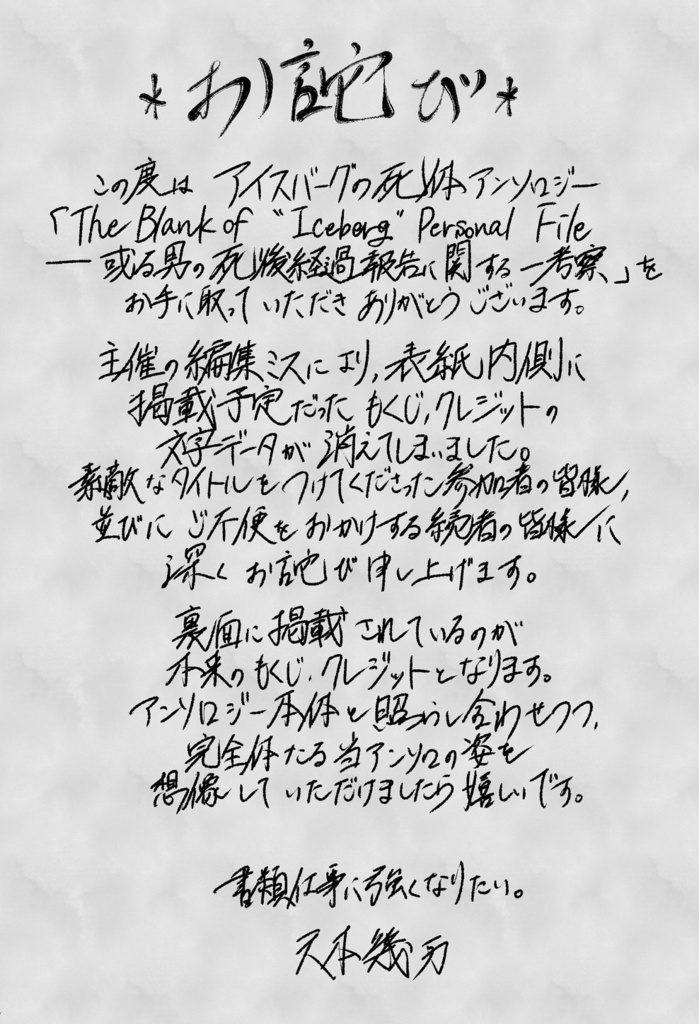 *お詫び*
この度は アイスバーグの死体アンソロジー
「The Blank of "Iceberg" Personal File
—或る男の死後経過報告に関する一考察」を
お手に取って いただき ありがとうございます。
主催の編集ミスにより,表紙内側に
掲載予定だった もくじ,クレジットの
文字データが 消えてしまいました。
素敵なタイトルをつけてくださった参加者の皆様,
並びに ご不便をおかけする読者の皆様に
深く お詫び申し上げます。
裏面に掲載されているのが
本来のもくじ,クレジットとなります。
アンソロジー本体と照らし合わせつつ,
完全体たる当アンソロの姿を
想像して いただけましたら嬉しいです。
書類仕事に強くなりたい。